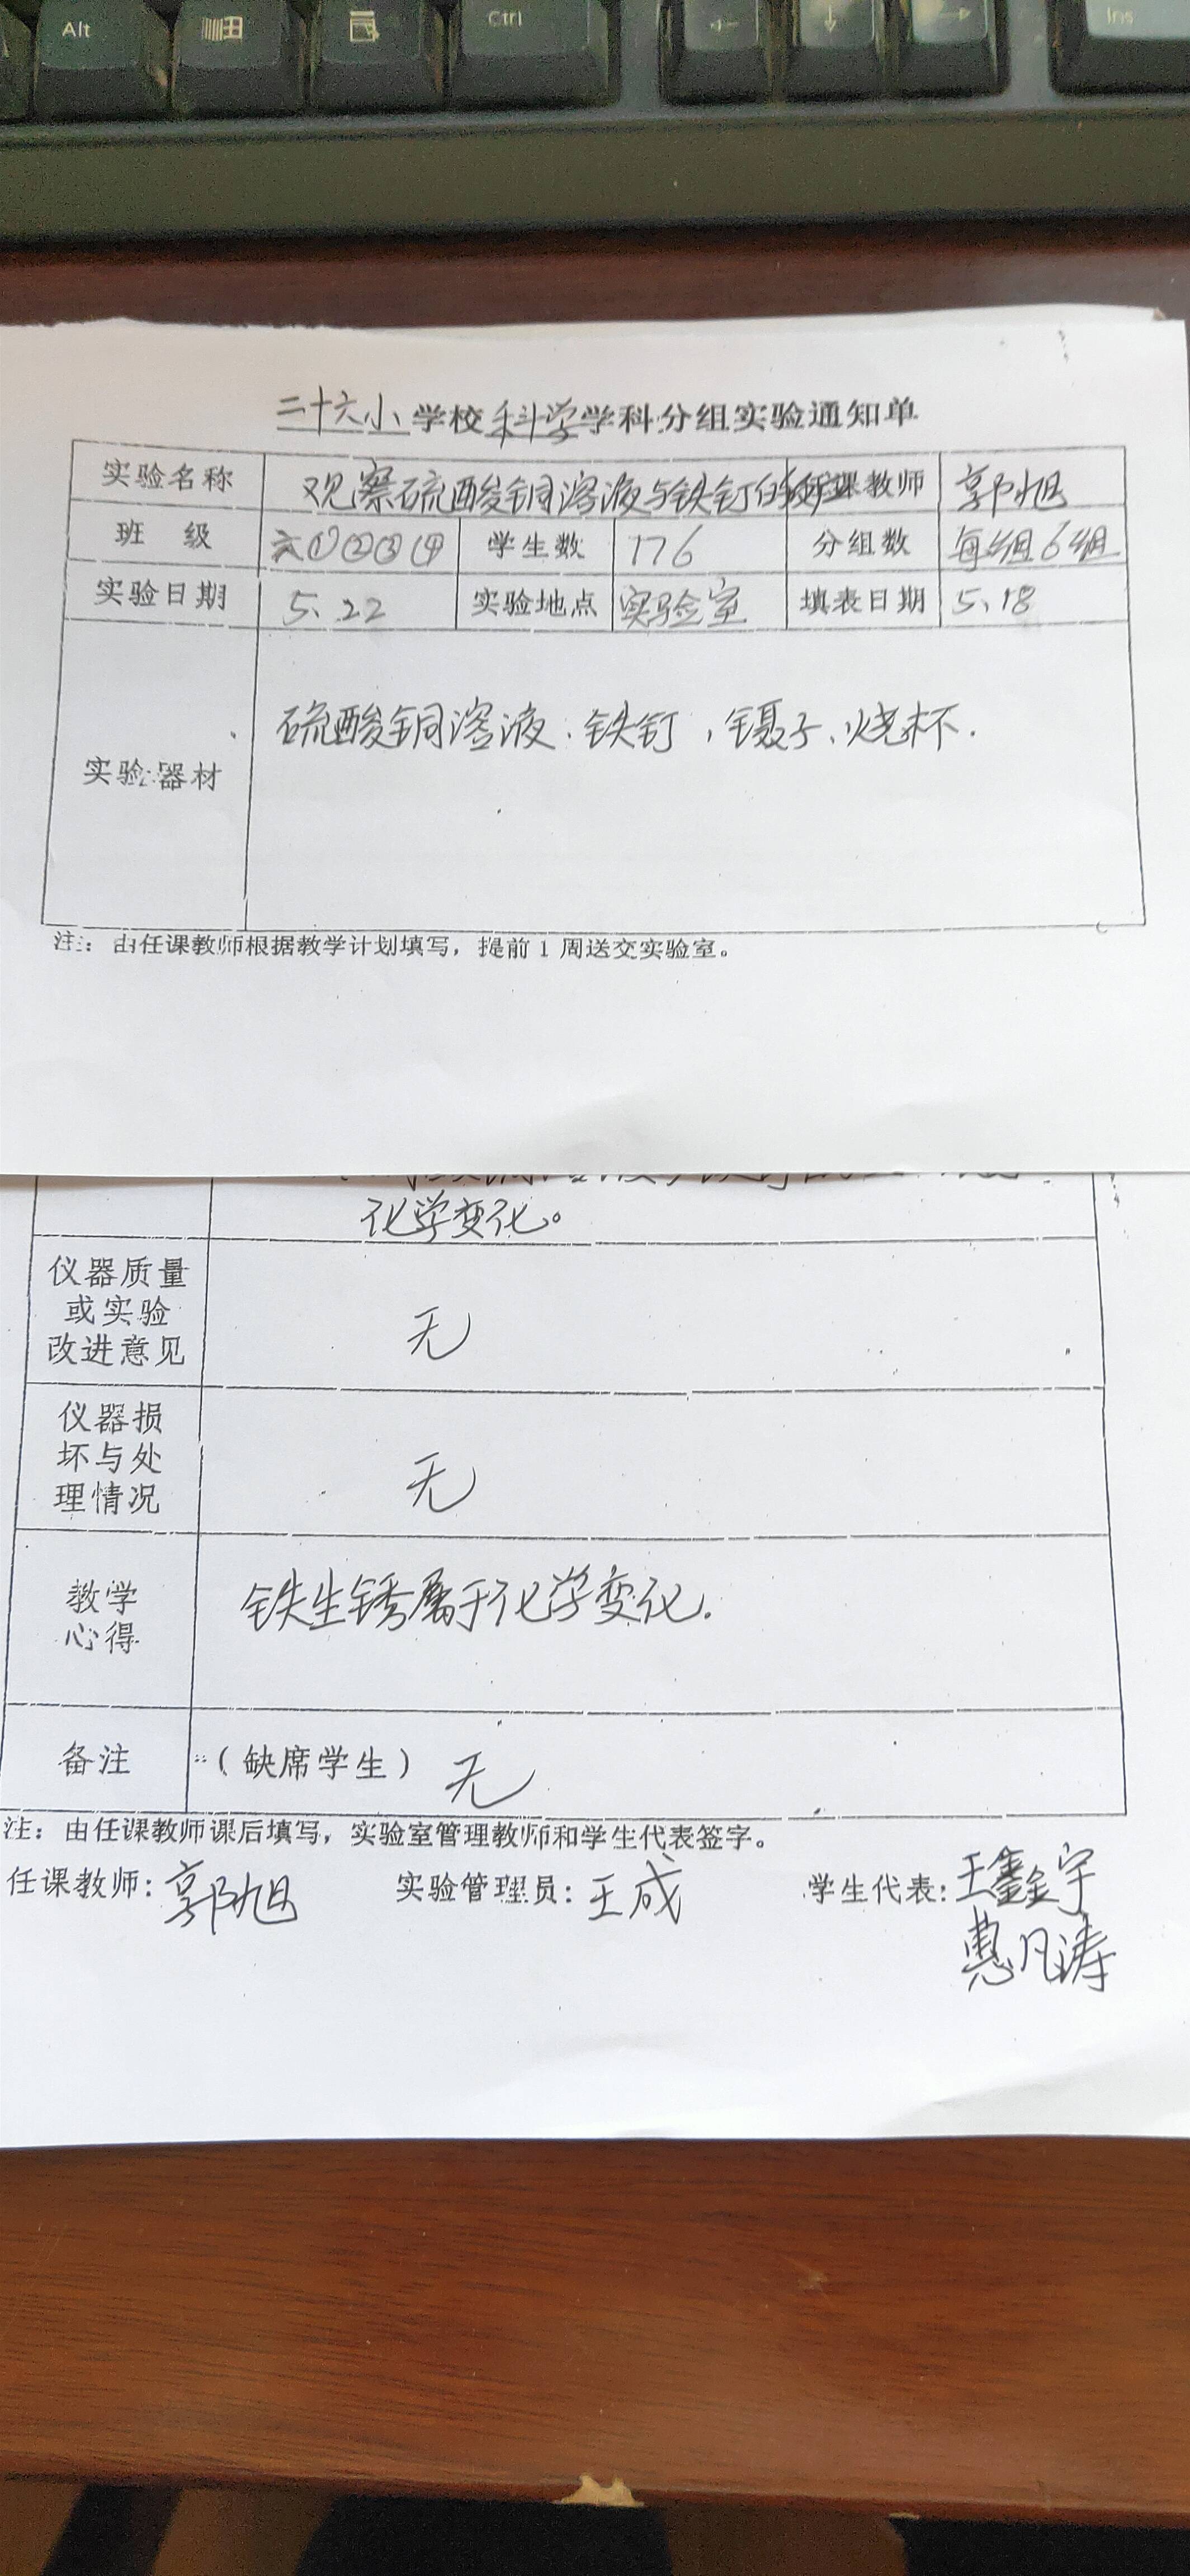 Alt
Ctrl
Ins
二十六小学校科学学科分组实验通知单
实验名称 观察硫酸铜溶液与铁钉的 任课教师 郭旭
班 级 六①②③④ 学生数 176 分组数 每组6组
实验日期 5.22 实验地点 实验室 填表日期 5.18
实验器材 硫酸铜溶液、铁钉、镊子、烧杯.
注: 由任课教师根据教学计划填写,提前1周送交实验室。
化学变化。
仪器质量
或实验
改进意见
无
仪器损
坏与处
理情况
无
教学
心得
铁生锈属于化学变化.
备注 (缺席学生) 无
注: 由任课教师课后填写,实验室管理教师和学生代表签字。
任课教师: 郭旭 实验管理员: 王成 学生代表: 王鑫宇
惠凡涛